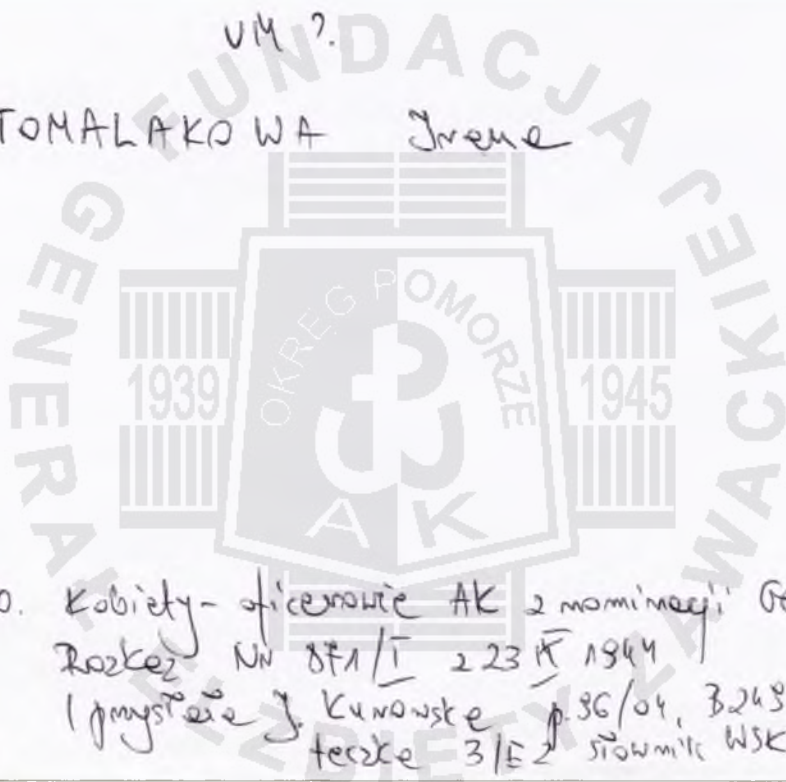 VM ?.
TOMALAKOWA Irena
FUNDACJA GENERAŁ ELŻBIETY ZAWACKIEJ
OKRĘG POMORZE
1939 1945
AK
o. Kobiety - oficerowie AK z nominacji
Rozkaz NN 871/I z 23 IX 1944
(przysłała J. Kunowska p. 96/04,
teczka 3/E2 słownik WSK